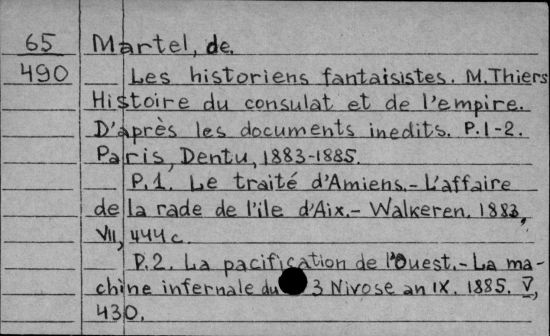 65 Martel, de.
490 Les historiens fantaisistes. M.Thiers
Histoire du consulat et de l'empire.
D'après les documents inedits. P.1-2.
Paris, Dentu, 1883-1885.
P.1. Le traité d'Amiens.- L'affaire
de la rade de l'ile d'Aix.- Walkeren. 1883,
VII, 444 c.
P.2. La pacification de l'Ouest.- La ma-
chine infernale du 3 Nivose an IX. 1885. V,
430.